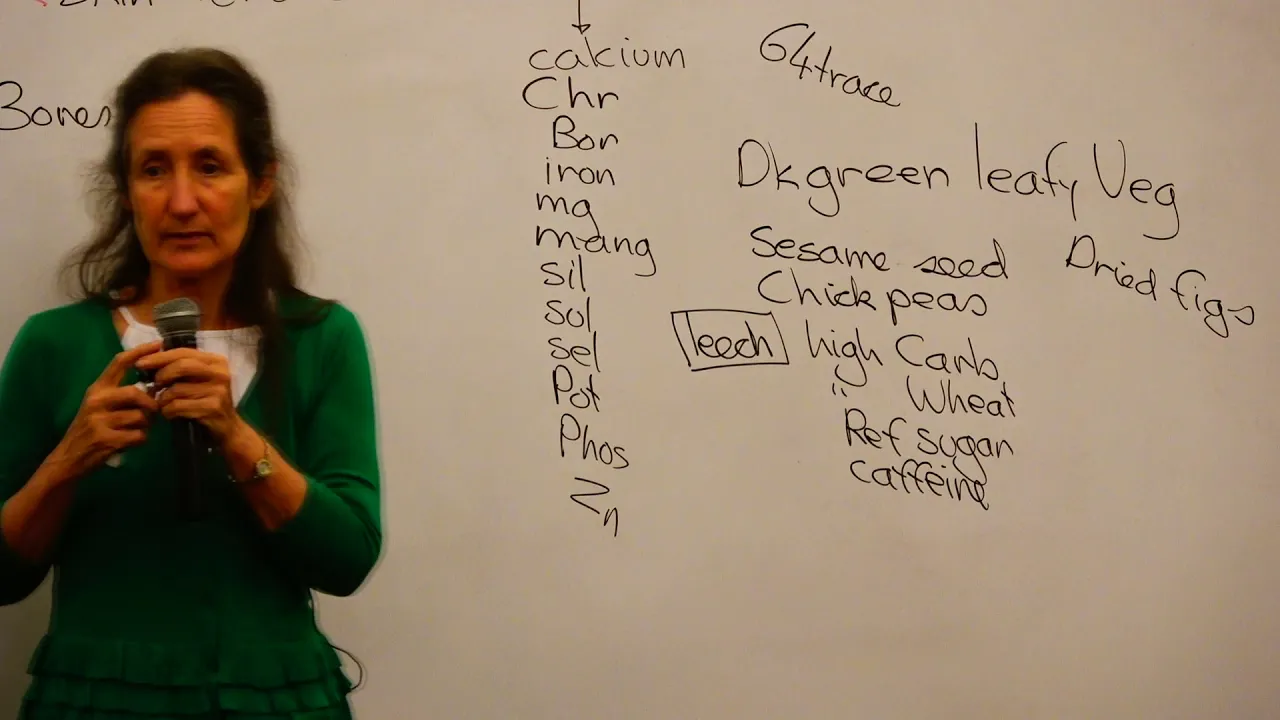 Bones
calcium
Chr
Bon
iron
mg
mang
sil
sol
sel
Pot
Phos
Zn
64 trace
Dkgreen leafy Veg
Sesame seed
Dried figs
Chick peas
leech
high Carb
" Wheat
Ref sugar
caffeine